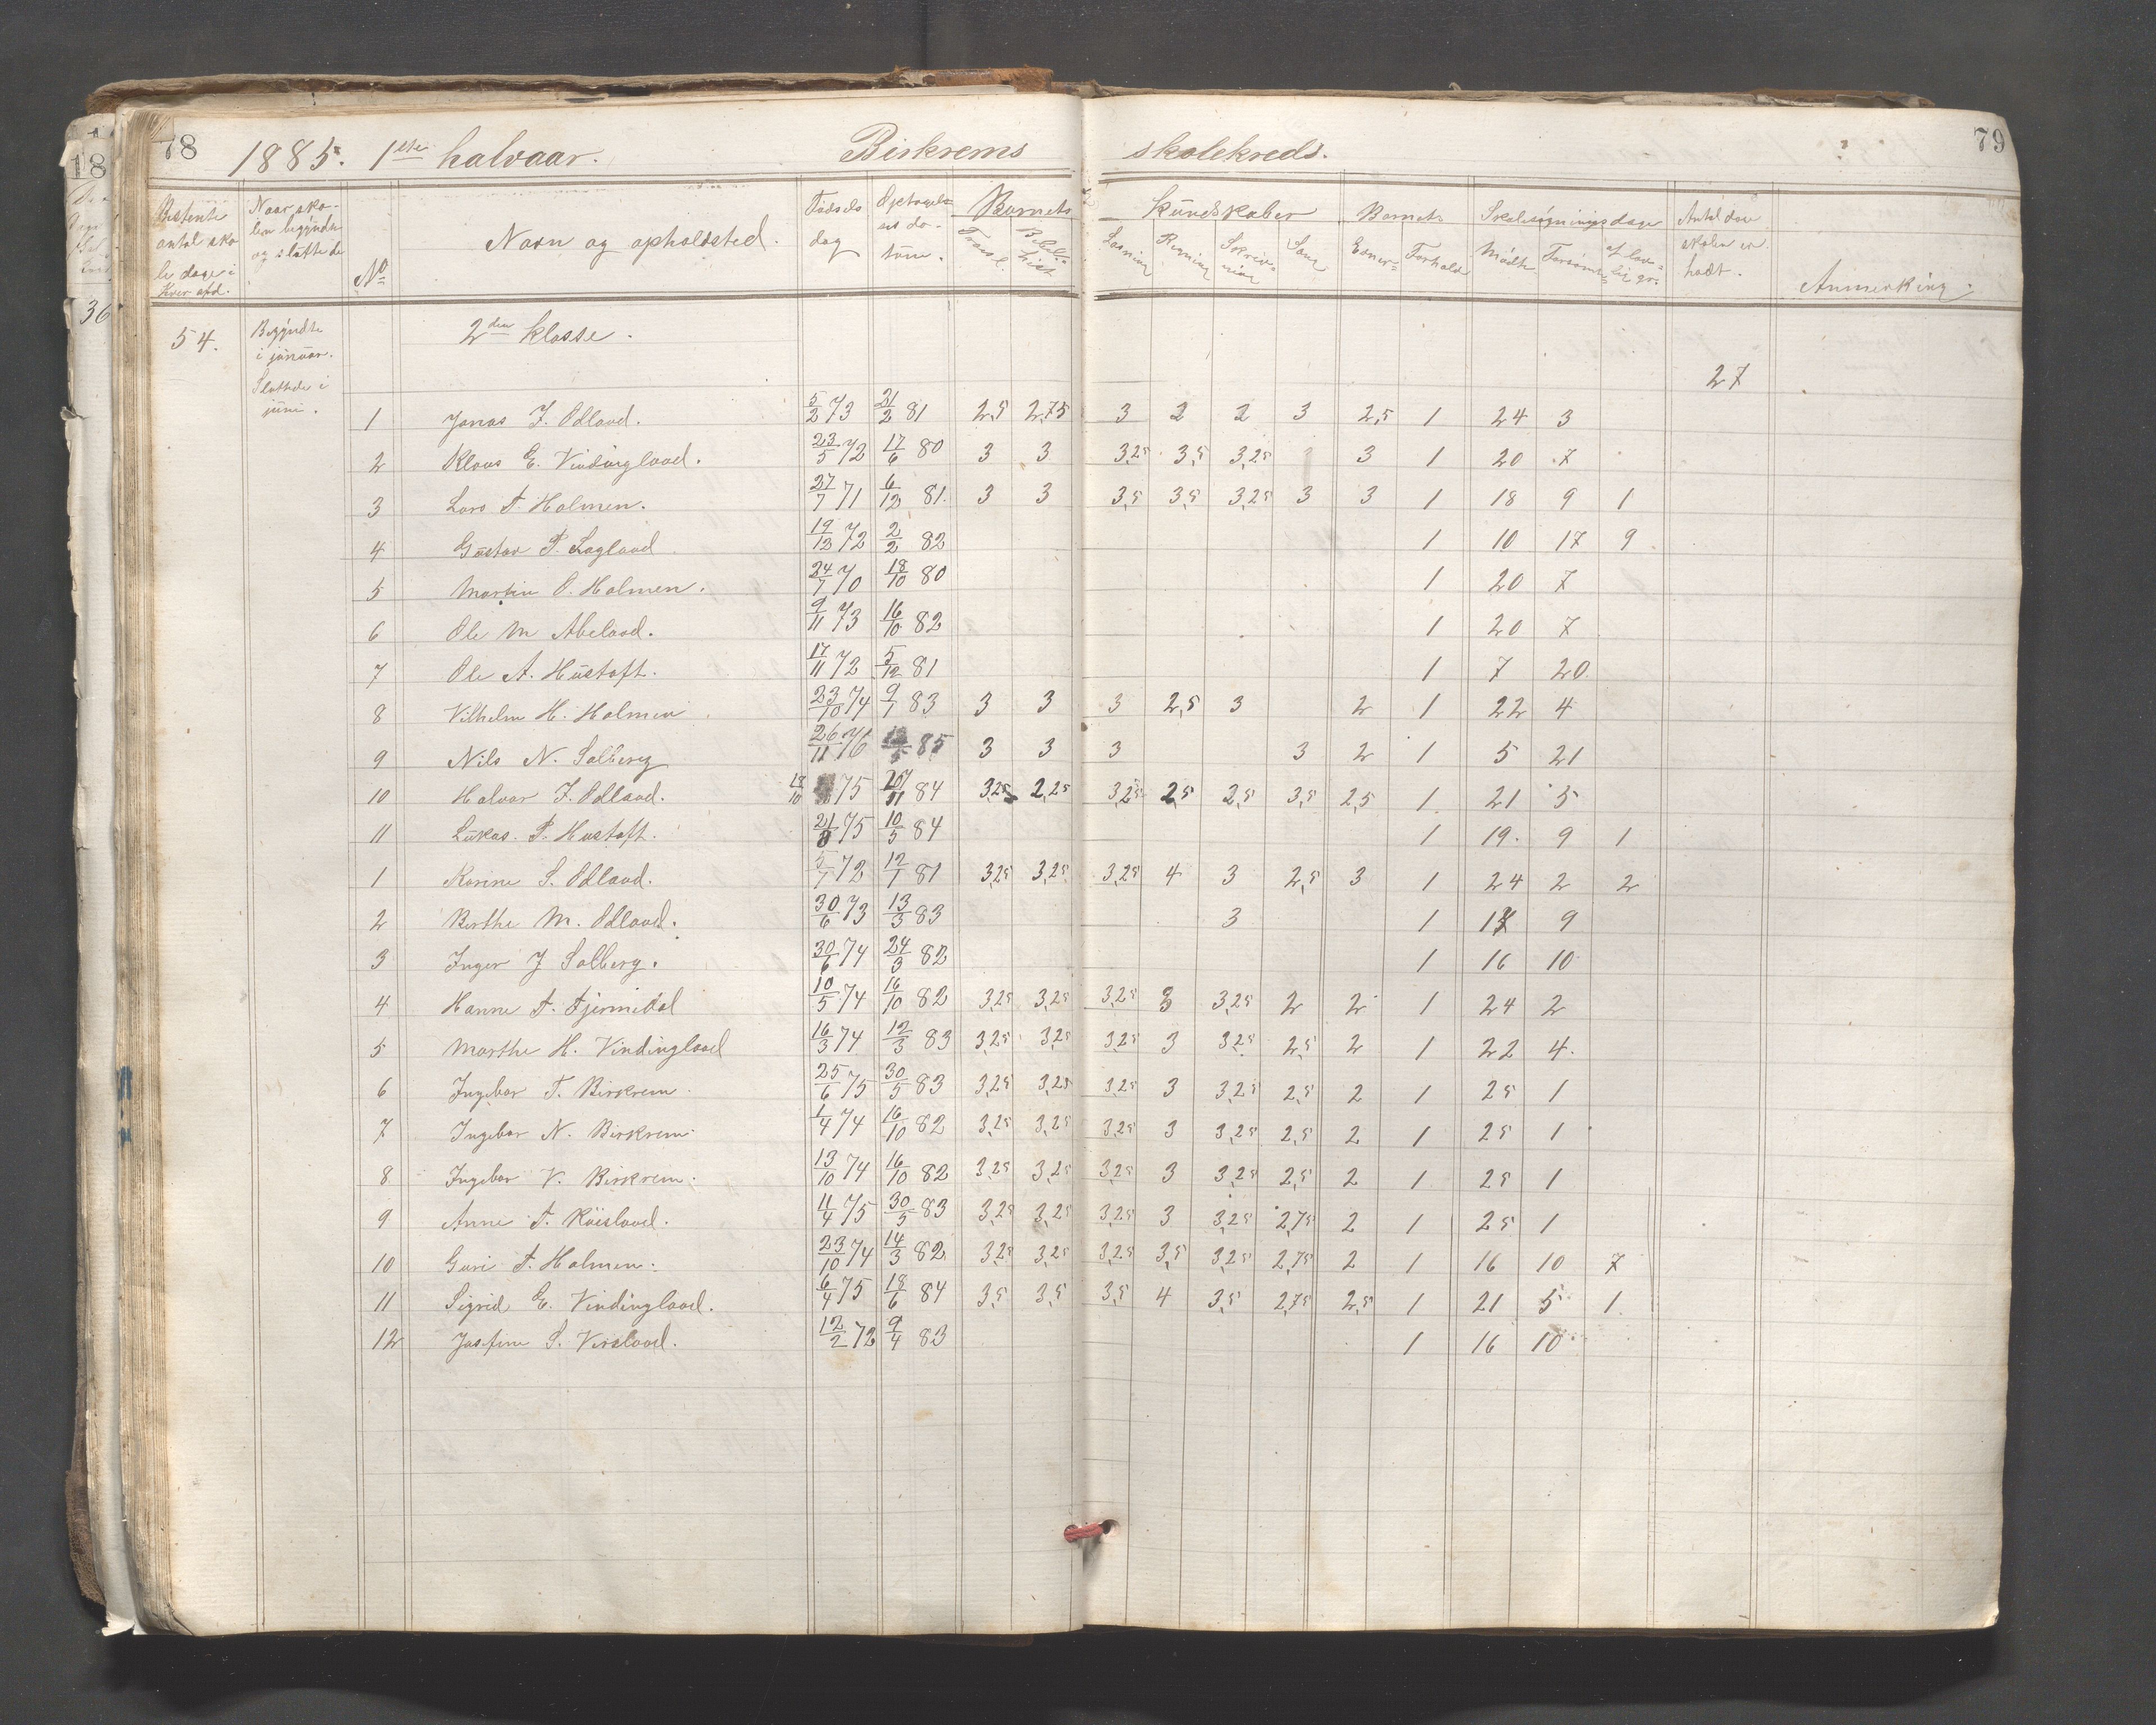 78 1885. 1ste halvaar. Birkrems skolekreds. 79
Bestemte antal skoledage i hver afd.
Naar skolen begyndte og sluttede
No
Navn og opholdsted.
Fødselsdag
Optagelsesdatum.
Barnets kundskaber
Troesl.
Bibelhist.
Læsning
Regning
Skrivning
Sang
Barnets
Evner
Forhold
Skolesøgningsdage
Mødte
Forsømte
af lovlig gr.
Antal dage skolen er holdt.
Anmerkning.
54. Begyndte i januar. Sluttede i juni. 2den klasse. 27
1 Jonas J. Odland. 5/2 73 21/2 81 2,5 2,75 3 2 2 3 2,5 1 24 3
2 Klaus E. Vindingland. 23/5 72 17/6 80 3 3 3,25 3,5 3,25 3 1 20 7
3 Lars T. Holmen. 27/7 71 6/12 81. 3 3 3,5 3,5 3,25 3 3 1 18 9 1
4 Gustav P. Lagland 19/12 72 2/2 82 1 10 17 9
5 Martin O. Holmen. 24/7 70 18/10 80 1 20 7
6 Ole M Abeland. 9/11 73 16/10 82 1 20 7
7 Ole A. Hustoft. 17/11 72 5/12 81 1 7 20
8 Vilhelm H. Holmen 23/10 74 9/1 83 3 3 3 2,5 3 2 1 22 4
9 Nils N. Solberg 26/11 76 85 3 3 3 3 2 1 5 21
10 Halvor J. Odland. 18/10 75 84 3,25 2,25 3,25 2,5 2,5 3,5 2,5 1 21 5
11 Lukas. P. Hustoft. 21/8 75 10/5 84 1 19. 9 1
1 Karine S. Odland. 5/7 72 12/1 81 3,25 3,25 3,25 4 3 2,5 3 1 24 2 2
2 Berthe M. Odland. 30/6 73 13/3 83 3 1 9
3 Inger J Solberg. 30/6 74 24/3 82 1 16 10
4 Hanne T. Tjørmedal 10/5 74 16/10 82 3,25 3,25 3,25 3 3,25 2 2 1 24 2
5 Marthe H. Vindingland 16/3 74 12/3 83 3,25 3,25 3,25 3 3,25 2,5 2 1 22 4.
6 Ingebor T. Birkrem. 25/6 75 30/5 83 3,25 3,25 3,25 3 3,25 2,5 2 1 25 1
7 Ingebor N. Birkrem. 1/4 74 16/10 82 3,25 3,25 3,25 3 3,25 2,5 2 1 25 1
8 Ingebor V. Birkrem. 13/10 74 16/10 82 3,25 3,25 3,25 3 3,25 2,5 2 1 25 1
9 Anne T. Røisland. 11/4 75 30/5 83 3,25 3,25 3,25 3 3,25 2,75 2 1 25 1
10 Guri T. Holmen. 23/10 74 14/3 82 3,25 3,25 3,25 3,5 3,25 2,75 2 1 16 10 7
11 Sigrid E. Vindingland. 6/4 75 18/6 84 3,5 3,5 3,5 4 3,5 2,75 2,5 1 21 5 1
12 Josefine S. Virsland. 12/2 72 9/4 83 1 16 10
18
36